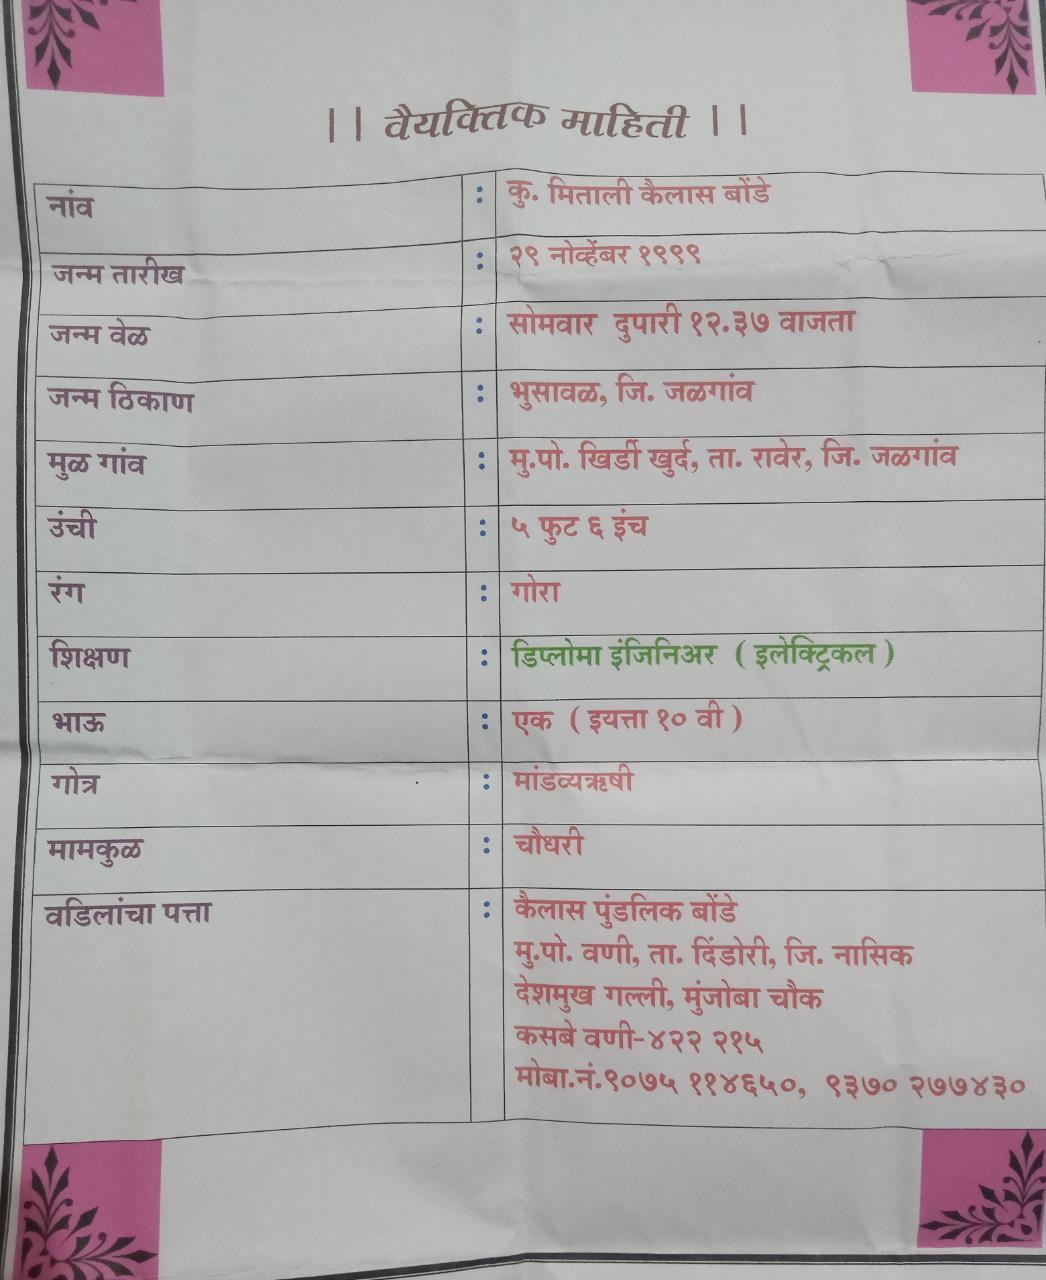 || वैयक्तिक माहिती ||
नांव : कु. मिताली कैलास बोंडे
जन्म तारीख : २९ नोव्हेंबर १९९९
जन्म वेळ : सोमवार दुपारी १२.३७ वाजता
जन्म ठिकाण : भुसावळ, जि. जळगांव
मुळ गांव : मु.पो. खिर्डी खुर्द, ता. रावेर, जि. जळगांव
उंची : ५ फुट ६ इंच
रंग : गोरा
शिक्षण : डिप्लोमा इंजिनिअर ( इलेक्ट्रिकल )
भाऊ : एक ( इयत्ता १० वी )
गोत्र : मांडव्यऋषी
मामकुळ : चौधरी
वडिलांचा पत्ता : कैलास पुंडलिक बोंडे
मु.पो. वणी, ता. दिंडोरी, जि. नासिक
देशमुख गल्ली, मुंजोबा चौक
कसबे वणी-४२२ २१५
मोबा.नं.९०७५ ११४६५०, ९३७० २७७४३०